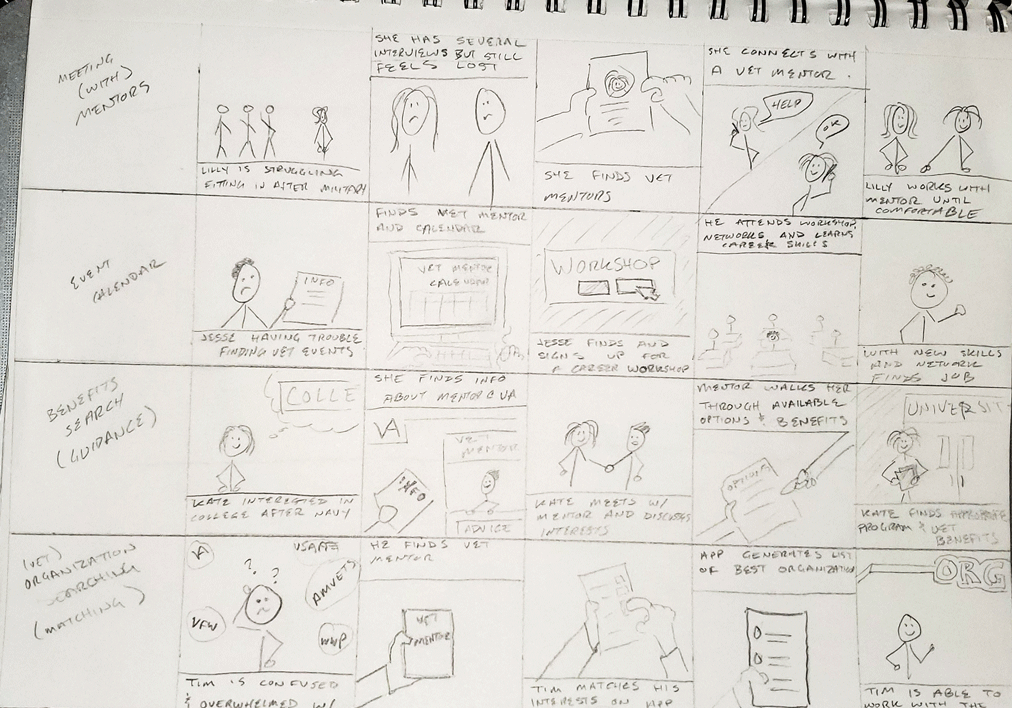 MEETING
(WITH)
MENTORS
LILLY IS STRUGGLING
FITTING IN AFTER MILITARY
SHE HAS SEVERAL
INTERVIEWS BUT STILL
FEELS LOST
SHE FINDS VET
MENTORS
SHE CONNECTS WITH
A VET MENTOR.
HELP
OK
LILLY WORKS WITH
MENTOR UNTIL
COMFORTABLE
EVENT
CALENDAR
INFO
JESSE HAVING TROUBLE
FINDING VET EVENTS
FINDS MET MENTOR
AND CALENDAR
VET MENTOR
CALENDAR
WORKSHOP
JESSE FINDS AND
SIGNS UP FOR
A CAREER WORKSHOP
HE ATTENDS WORKSHOP,
NETWORKS AND LEARNS
CAREER SKILLS
WITH NEW SKILLS
AND NETWORK
FINDS JOB
BENEFITS
SEARCH
(GUIDANCE)
COLLE
KATE INTERESTED IN
COLLEGE AFTER NAVY
SHE FINDS INFO
ABOUT MENTOR @ VA
VA
INFO
VET
MENTOR
ADVICE
KATE MEETS W/
MENTOR AND DISCUSSES
INTERESTS
MENTOR WALKS HER
THROUGH AVAILABLE
OPTIONS & BENEFITS
OPTIONS
UNIVERSIT
KATE FINDS APPROPRIATE
PROGRAM & VET
BENEFITS
(VET)
ORGANIZATION
SEARCHING
(MATCHING)
VA
USAFE
? ?
AMVETS
VFW
WWP
TIM IS CONFUSED
& OVERWHELMED W/
HE FINDS VET
MENTOR
VET
MENTOR
TIM MATCHES HIS
INTERESTS ON APP
APP GENERATES LIST
OF BEST ORGANIZATION
ORG
TIM IS ABLE TO
WORK WITH THE